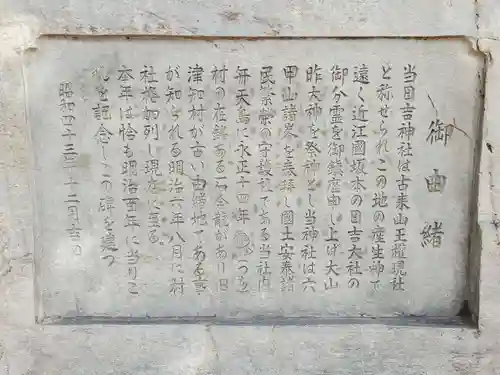 御由緒
当日吉神社は古来山王権現社
と称せられこの地の産生神で
遠く近江國坂本の日吉大社の
御分霊を御鎮座申し上げ大山
昨大神を祭神とし当神社は六
甲山諸峯を表珠し國土安泰諸
民栄の守護社である当社内
弁天島に永正十四年
村の在銘ある念龕があり旧
津知村が古い由緒地である事
が知られる明治六年八月に村
社格加列し現在に至る
本年は恰も明治百年に当りこ
れを記念しこの碑を建つ
昭和四十三年十二月吉日